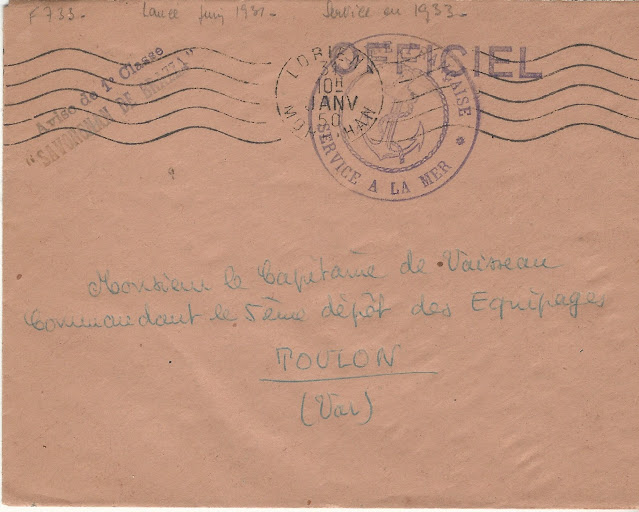 F733. Lancé juin 1931. Service en 1933.
Aviso de 1° Classe
"SAVORGNAN DE BRAZZA"
OFFICIEL
LORIENT
10H
JANV
50
MORBIHAN
SERVICE A LA MER
Monsieur le Capitaine de Vaisseau
Commandant le 5ème dépôt des Equipages
TOULON
(Var)